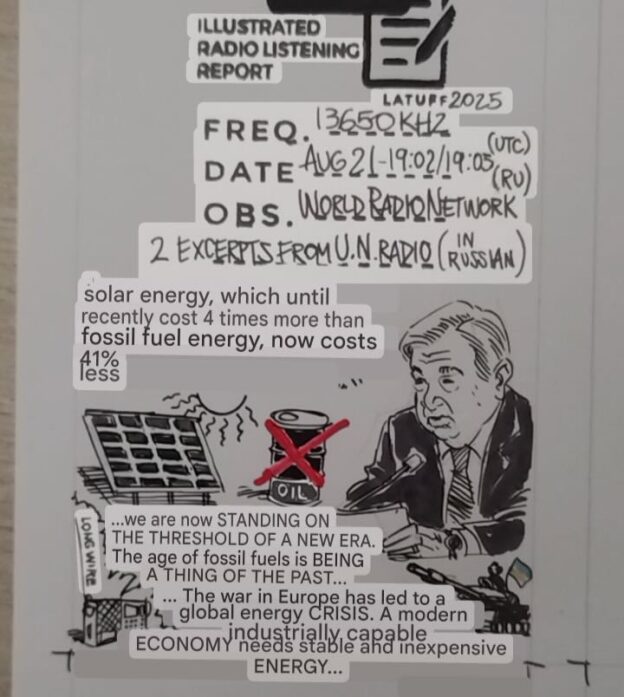 ILLUSTRATED
RADIO LISTENING
REPORT
LATUFF 2025
FREQ. 13650 KHZ
DATE AUG 21-19:02/19:05 (UTC)
(RU)
OBS. WORLD RADIO NETWORK
2 EXCERPTS FROM U.N. RADIO (IN RUSSIAN)
solar energy, which until
recently cost 4 times more than
fossil fuel energy, now costs
41%
less
OIL
...we are now STANDING ON
THE THRESHOLD OF A NEW ERA.
The age of fossil fuels is BEING
A THING OF THE PAST...
LONG WIRE
... The war in Europe has led to a
global energy CRISIS. A modern
industrially capable
ECONOMY needs stable and inexpensive
ENERGY...